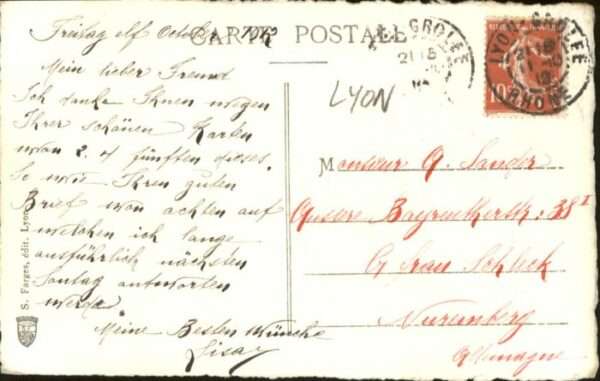 CARTE POSTALE
Freitag elf October 1912
Mein lieber Freund
Ich danke Ihnen wegen
Ihrer schönen Karten
von 2. 4 fünften dieses.
So wie Ihren guten
Brief von achten auf
welchen ich lange
ausführlich nächsten
Sontag antworten
werde
Meine Besten Wünche
Lisa
S. Farges, édit. Lyon
LYON
LYON-GROLÉE
21 15
12
RHONE
10
Monsieur G. Sander
Aussere Bayreutherstr: 38 I
C/ Frau Schleck
Nuremberg
Allemagne